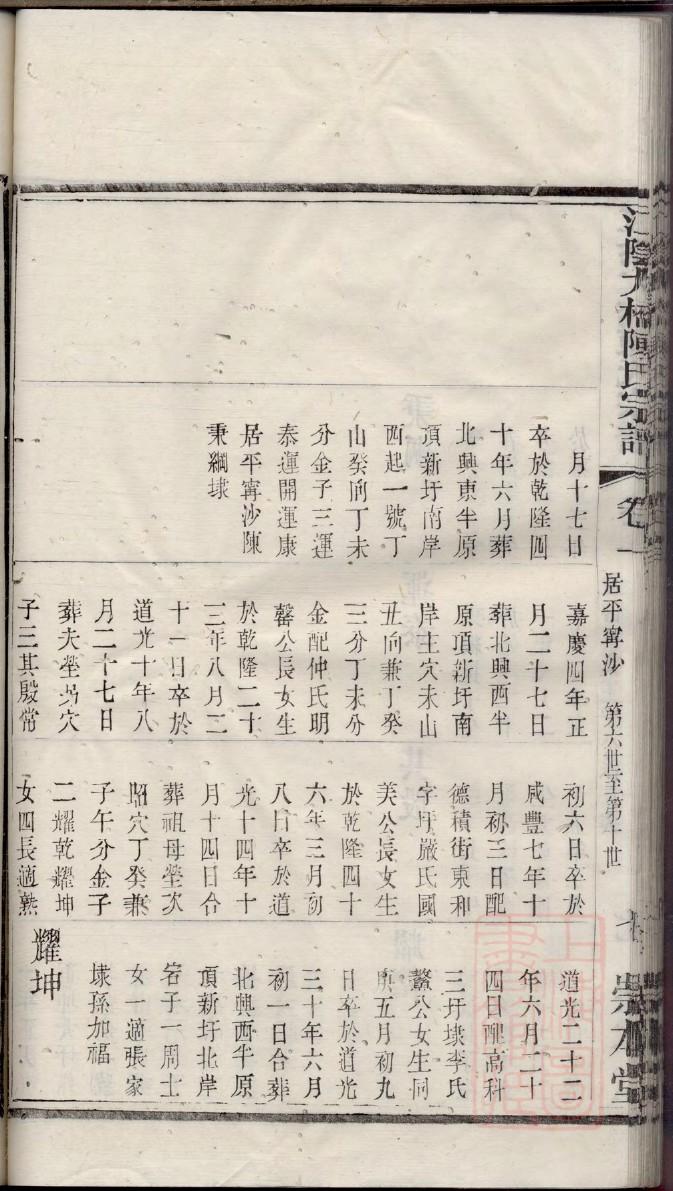 江陰九橋陳氏宗譜
卷一
居平寗沙
第六世至第十世
七
崇本堂
月十七日
卒於乾隆四
十年六月葬
北興東半原
頂新圩南岸
西起一號丁
山癸向丁未
分金子三運
泰運開運康
居平寗沙陳
秉綱埭
嘉慶四年正
月二十七日
葬北興西半
原項新圩南
岸主穴未山
丑向兼丁癸
三分丁未分
金配仲氏明
馨公長女生
於乾隆二十
三年八月二
十一日卒於
道光十年八
月二十七日
葬夫塋昻穴
子三其殷常
初六日卒於
咸豐七年十
月初三日配
德積街東和
字圩嚴氏國
美公長女生
於乾隆四十
六年三月初
八日卒於道
光十四年十
月十四日合
葬祖母塋次
昭穴丁癸兼
子午分金子
二耀乾耀坤
女四長適熟
道光二十二
年六月二十
四日配高科
三圩埭李氏
鰲公女生同
庚五月初九
日卒於道光
三十年六月
初一日合葬
北興西半原
頂新圩北岸
子一周士
女一適張家
埭孫加福
耀坤